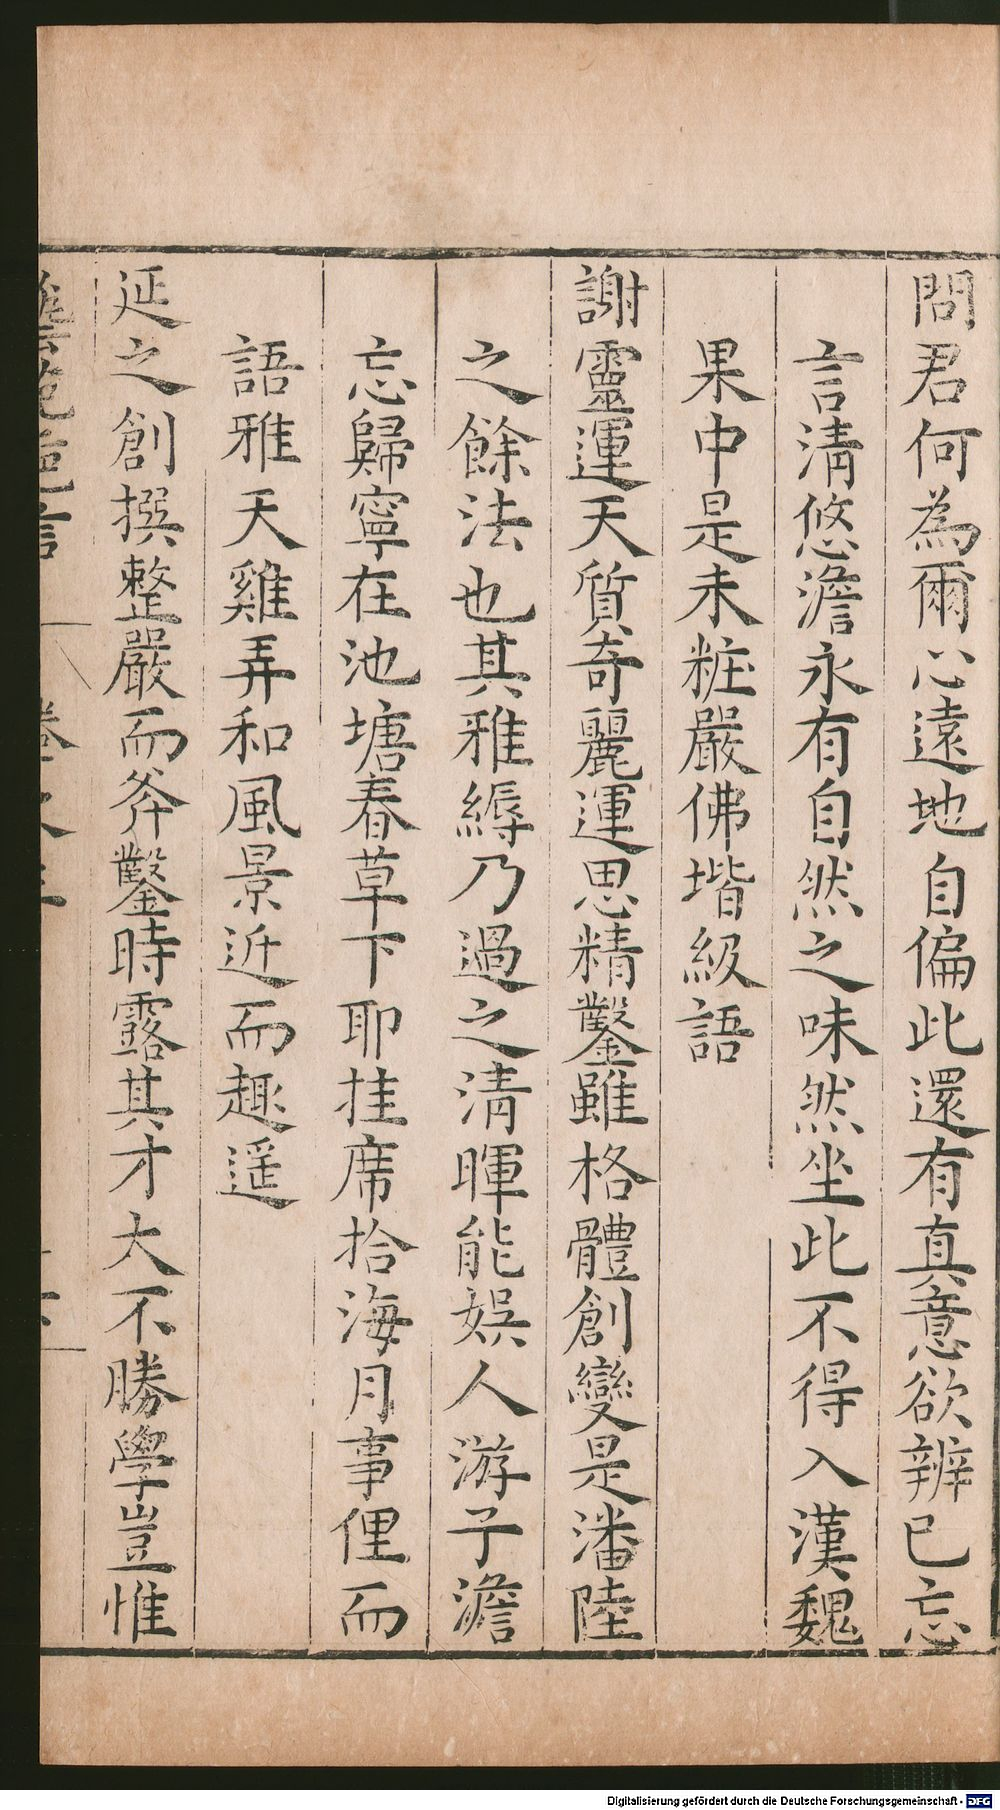 問君何為爾心遠地自偏此還有真意欲辨已忘
言清悠澹永有自然之味然坐此不得入漢魏
果中是未粧嚴佛堦級語
謝靈運天質奇麗運思精鑿雖格體創變是潘陸
之餘法也其雅縟乃過之清暉能娛人游子澹
忘歸寧在池塘春草下耶挂席拾海月事俚而
語雅天雞弄和風景近而趣遥
延之創撰整嚴而斧鑿時露其才大不勝學豈惟
Digitalisierung gefördert durch die Deutsche Forschungsgemeinschaft - DFG